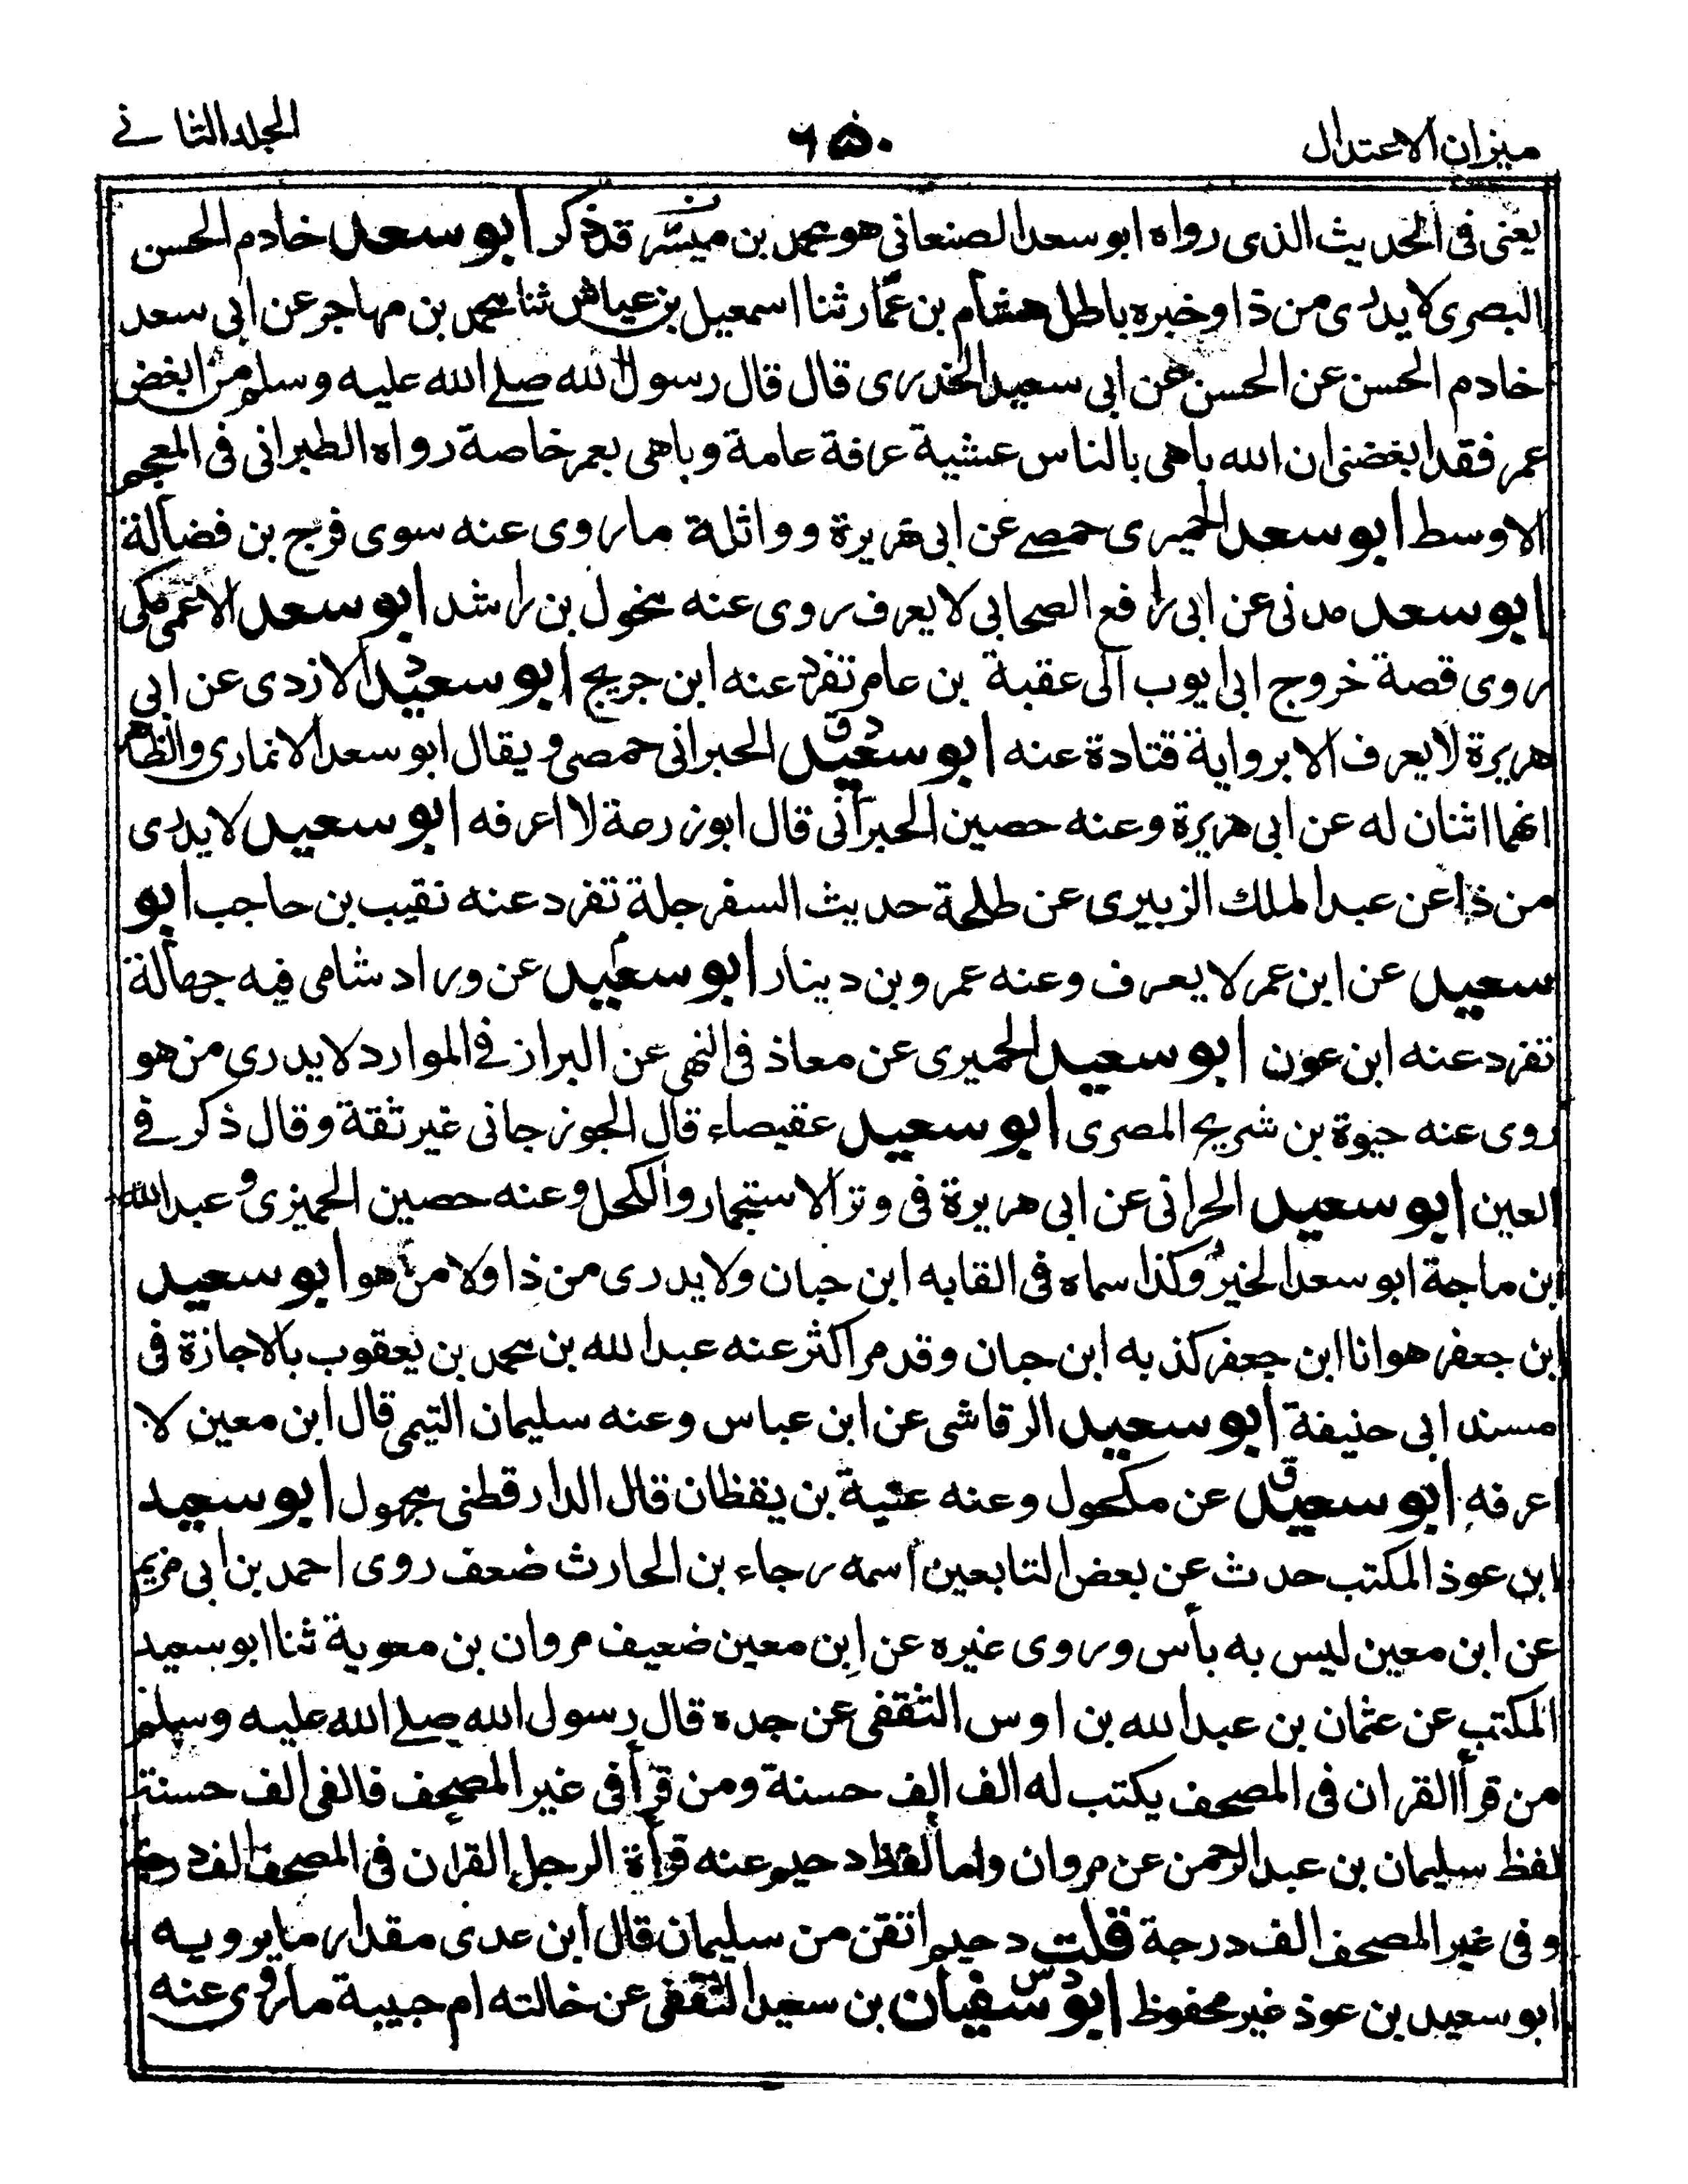 ميزان الاعتدال
٦٥٠
المجلد الثاني
يعنى فى الحديث الذى رواه ابو سعد الصنعانى هو محمد بن ميسر قد ذكر ابو سعد خادم الحسن
البصرى لا يدرى من ذا وخبره باطل هشام بن عمار ثنا اسمعيل بن عياش ثنا محمد بن مهاجر عن ابى سعد
خادم الحسن عن الحسن عن ابى سعيد الخدرى قال قال رسول الله صلے الله عليه وسلم من ابغض
عمر فقد ابغضنى ان الله باهى بالناس عشية عرفة عامة وباهى بعمر خاصة رواه الطبرانى فى المعجم
الاوسط ابو سعد الحميرى حمصے عن ابى هريرة وواثلة ما روى عنه سوى فرج بن فضالة
ابو سعد مدنى عن ابى رافع الصحابى لا يعرف روى عنه مخول بن راشد ابو سعد الاعمى مكى
روى قصة خروج ابى ايوب الى عقبة بن عامر تفرد عنه ابن جريج ابو سعيد الازدى عن ابى
هريرة لا يعرف الا برواية قتادة عنه ابو سعيد الحبرانى حمصى ويقال ابو سعد الانمارى والظاهر
انهما اثنان له عن ابى هريرة وعنه حصين الحبرانى قال ابو زرعة لا اعرفه ابو سعيد لا يدرى
من ذا عن عبد الملك الزبيرى عن طلحة حديث السفرجلة تفرد عنه نقيب بن حاجب ابو
سعيد عن ابن عمر لا يعرف وعنه عمرو بن دينار ابو سعيد عن وراد شامى فيه جهالة
تفرد عنه ابن عون ابو سعيد الحميرى عن معاذ فى النهى عن البراز فے الموارد لا يدرى من هو
روى عنه حيوة بن شريح المصرى ابو سعيد عقيصاء قال الجوزجانى غير ثقة وقال ذكر فے
العين ابو سعيد الحرانى عن ابى هريرة فى وتر الاستجمار والكحل وعنه حصين الحميرى وعبد الله
ابن ماجة ابو سعد الخير وكذا سماه فى القابه ابن حبان ولا يدرى من ذا ولا من هو ابو سعيد
ابن جعفر هو انا ابن جعفر كذبه ابن حبان وقد مر اكثر عنه عبد الله بن محمد بن يعقوب بالاجازة فى
مسند ابى حنيفة ابو سعيد الرقاشى عن ابن عباس وعنه سليمان التيمى قال ابن معين لا
اعرفه ابو سعيد عن مكحول وعنه عتبة بن يقظان قال الدارقطنى مجهول ابو سعيد
ابن عوذ المكتب حدث عن بعض التابعين اسمه رجاء بن الحارث ضعف روى احمد بن ابى مريم
عن ابن معين ليس به بأس وروى غيره عن ابن معين ضعيف مروان بن معوية ثنا ابو سعيد
المكتب عن عثمان بن عبد الله بن اوس الثقفى عن جده قال رسول الله صلے الله عليه وسلم
من قرأ القران فى المصحف يكتب له الف الف حسنة ومن قرأ فى غير المصحف فالفى الف حسنة
لفظ سليمان بن عبد الرحمن عن مروان واما لفظ دحيم عنه قرأة الرجل القران فى المصحف الف درجة
وفى غير المصحف الف درجة قلت دحيم اتقن من سليمان قال ابن عدى مقدار ما يرويه
ابو سعيد بن عوذ غير محفوظ ابو سفيان بن سعيد الثقفى عن خالته ام حبيبة ما روى عنه